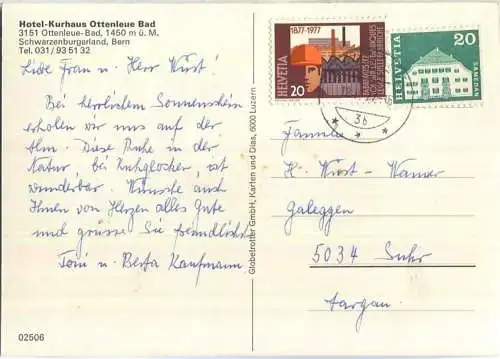 Hotel-Kurhaus Ottenleue Bad
3151 Ottenleue-Bad, 1450 m ü. M.
Schwarzenburgerland, Bern
Tel. 031/93 51 32
Liebe Frau u. Herr Wüst!
Bei herrlichstem Sonnenschein
erholen wir uns auf der
Alm. Diese Ruhe in der
Natur, bei Kuhglocken, ist
wunderbar. Wünsche auch
Ihnen von Herzen alles Gute
und grüsse Sie freundlichst
Toni u. Berta Kaufmann
02506
Globetrotter GmbH, Karten und Dias, 6000 Luzern
1877-1977
HELVETIA
20
HELVETIA
20
SAMEDAN
3b
Familie
H. Wüst-Wanner
Galeggen
5034 Suhr
Aargau